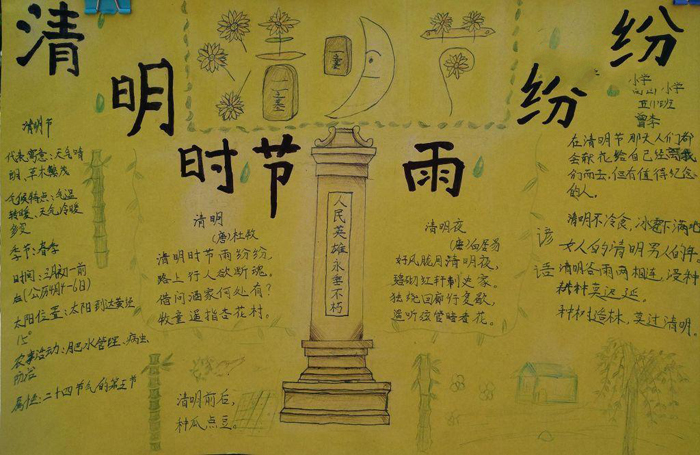 清
明
时节
雨
纷
纷
小学
小学
五(1)班
曾李
清明节
代表寓意:天气晴
明、草木繁茂
气候特点:气温
转暖、天气冷暖
多变
季节:春季
太阳位置:太阳到达黄经
15°
农事活动:肥水管理、病虫
防治
属性:二十四节气的第五节
清明
(唐)杜牧
清明时节雨纷纷,
路上行人欲断魂。
借问酒家何处有?
牧童遥指杏花村。
人民英雄永垂不朽
清明夜
(唐)白居易
好风胧月清明夜,
碧砌红轩刺史家。
独绕回廊行复歇,
遥听弦管暗看花。
清明前后,
种瓜点豆。
在清明节那天人们都
会献花给自己
们而去,但有值得纪念
的人。
谚语
清明不冷食,冰雹下满地
女人的清明男人的年。
清明谷雨两相连,浸种
耕种莫迟延。
种树造林,莫过清明。